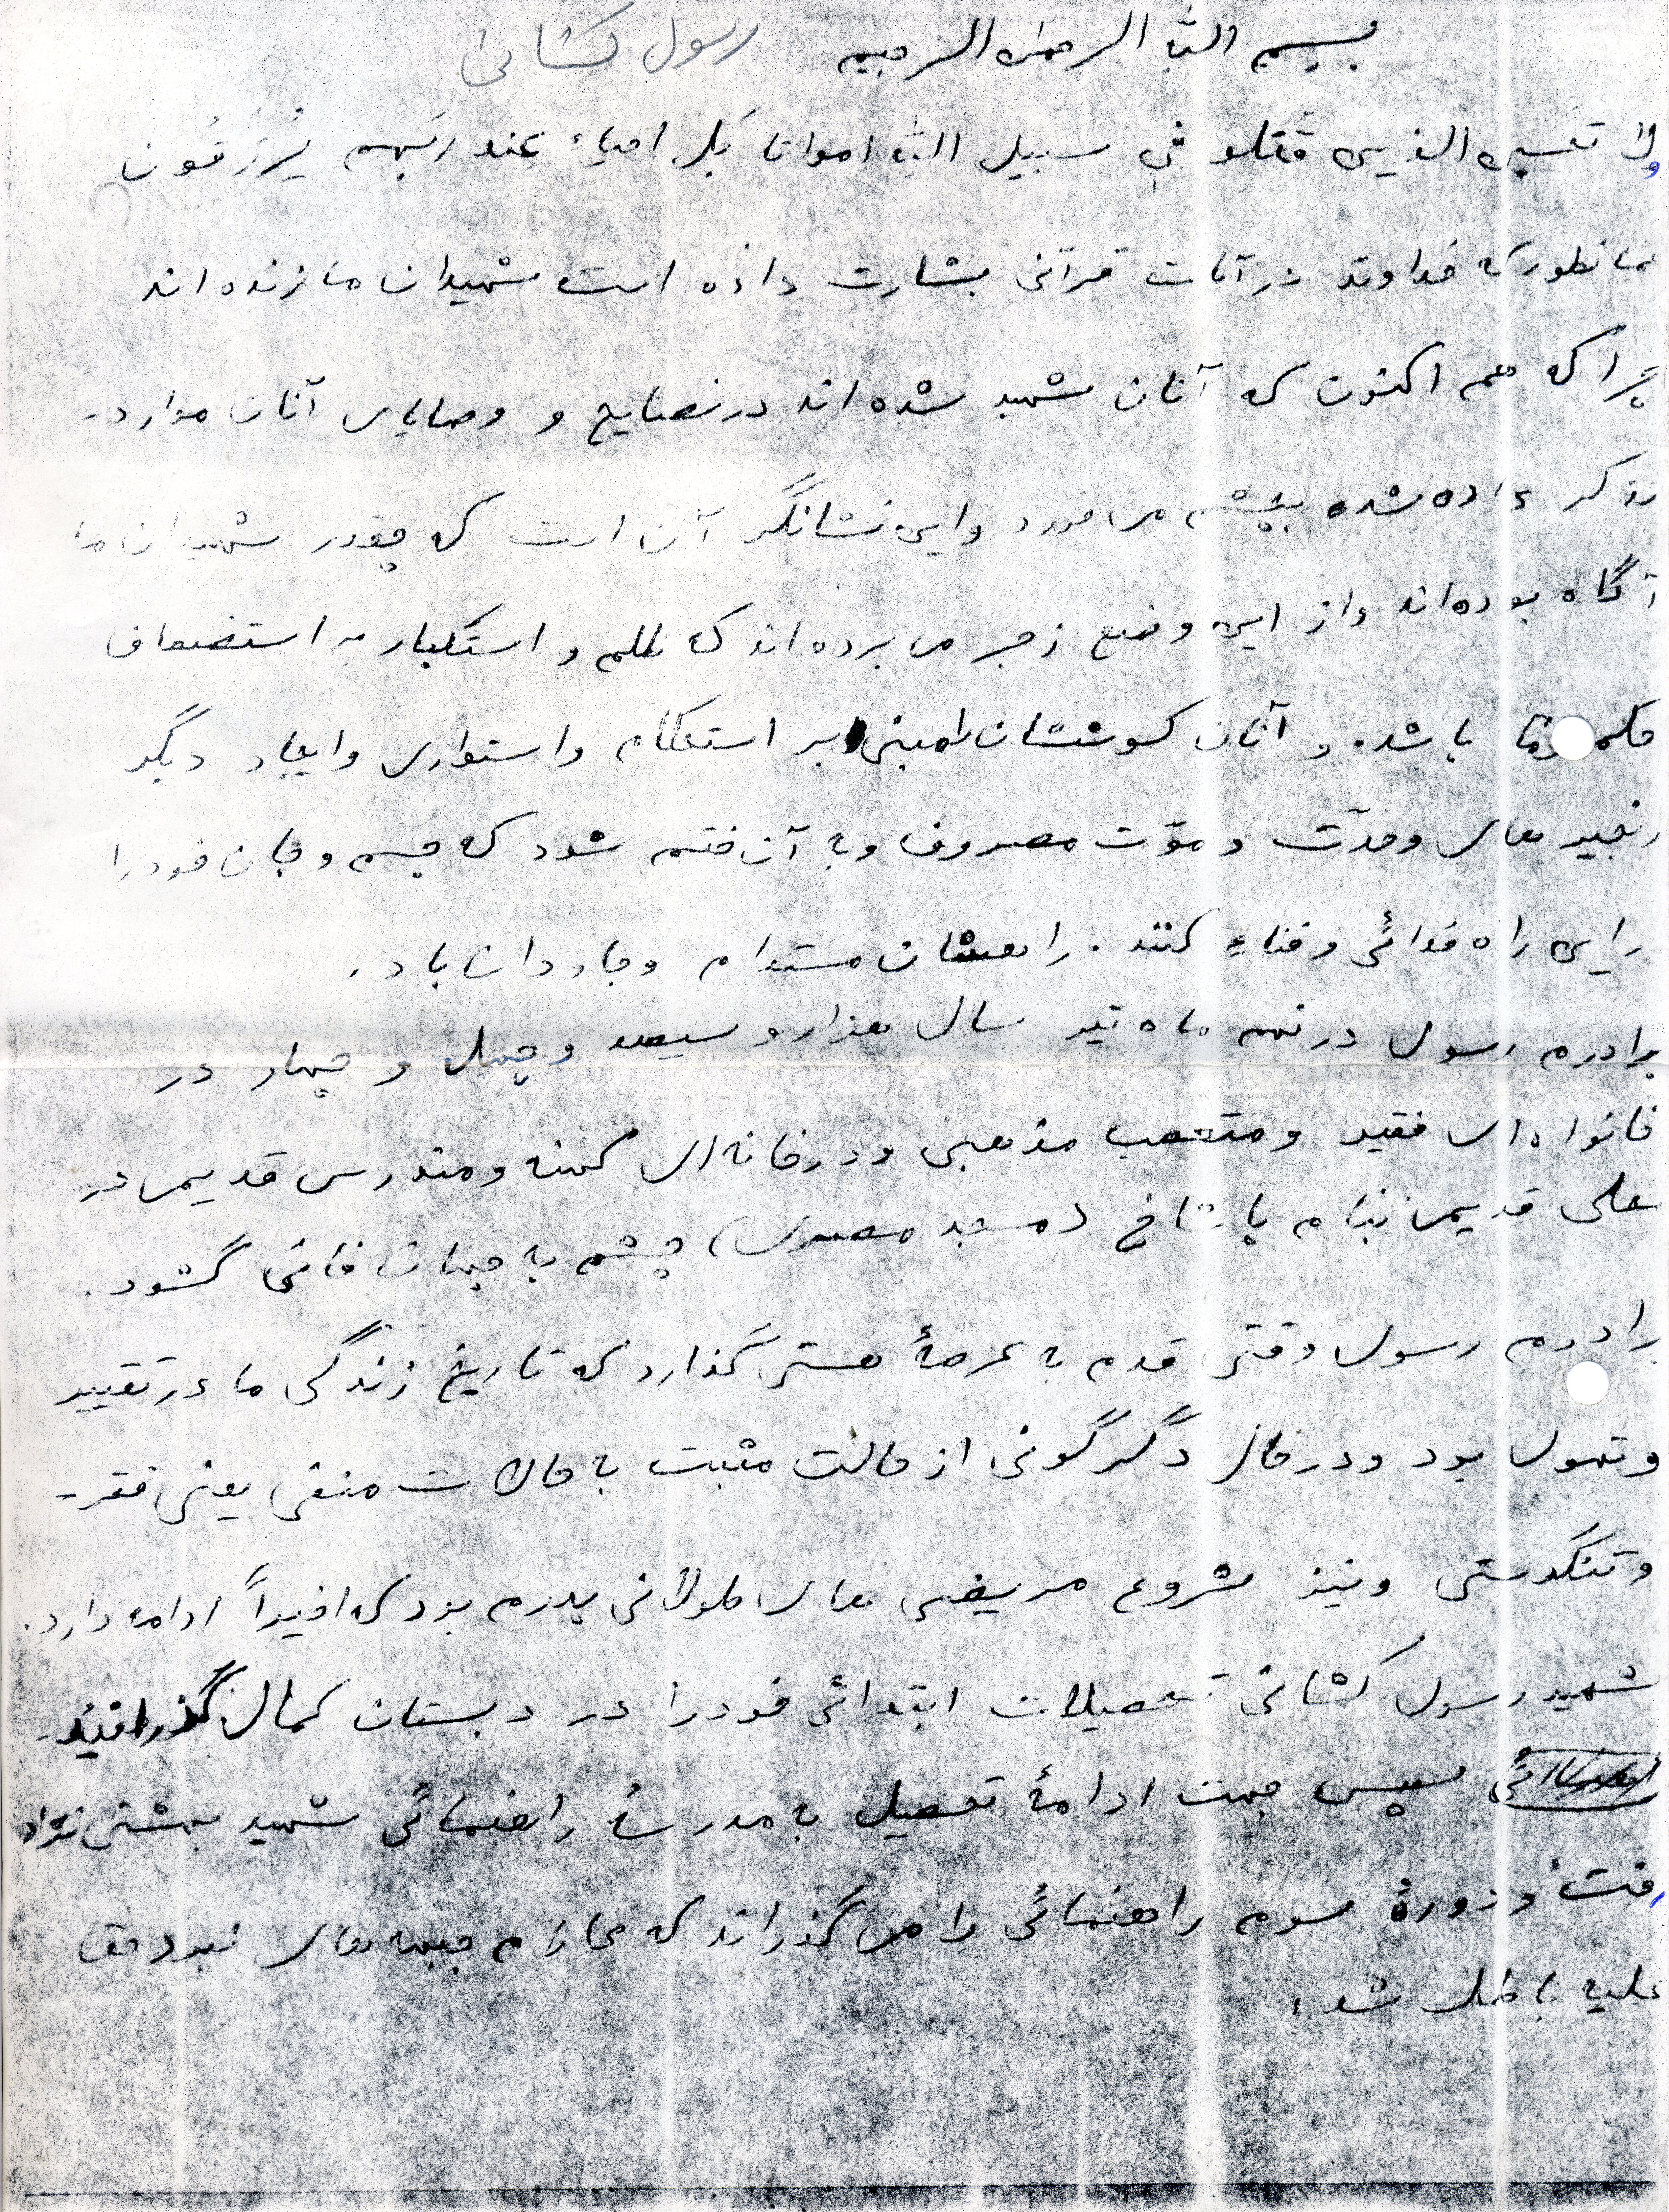 بسم الله الرحمن الرحیم رسول کشانی
ولا تحسبن الذین قتلو فی سبیل الله امواتا بل احیاء عند ربهم یُرزَقُون
همانطور که خداوند در آیات قرآنی بشارت داده است شهیدان ما زنده اند
چرا که هم اکنون که آنان شهید شده اند در نصایح و وصایای آنان موارد
ذکر داده شده بچشم می خورد و این نشانگر آن است که چقدر شهیدان ما
آگاه بوده اند و از این وضع زجر می برده اند که ظلم و استکبار بر استضعاف
حکمفرما باشد. و آنان کوششان را مبنی بر استحکام و استواری و ایجاد دیگر
زنجیر های وحدت و مودّت مصروف و به آن ختم شود که جسم و جان خود را
در این راه فدائی و فناء کنند. راهشان مستدام و جاودان باد.
برادرم رسول در نهم ماه تیر سال هزار و سیصد و چهل و چهار در
خانواده ای فقیر و متعصب مذهبی و در خانه ای کهنه و مندرس قدیمی در
محلی قدیمی بنام پاشاخ (مسجد مصری) چشم به جهان فانی گشود.
برادرم رسول وقتی قدم به عرصۀ هستی گذارد که تاریخ زندگی ما در تغییر
و تحول بود و در حال دگرگونی از حالت مثبت به حالات منفی یعنی فقر
و تنگدستی و نیز شروع مریضی های طولانی پدرم بود که اخیراً ادامه دارد.
شهید رسول کشانی تحصیلات ابتدائی خود را در دبستان کمال گذرانید
سپس جهت ادامۀ تحصیل به مدرسۀ راهنمائی شهید بهشتی نژاد
رفت و دورۀ سوم راهنمائی را می گذراند که عازم جبهه های نبرد حق
علیه باطل شد.